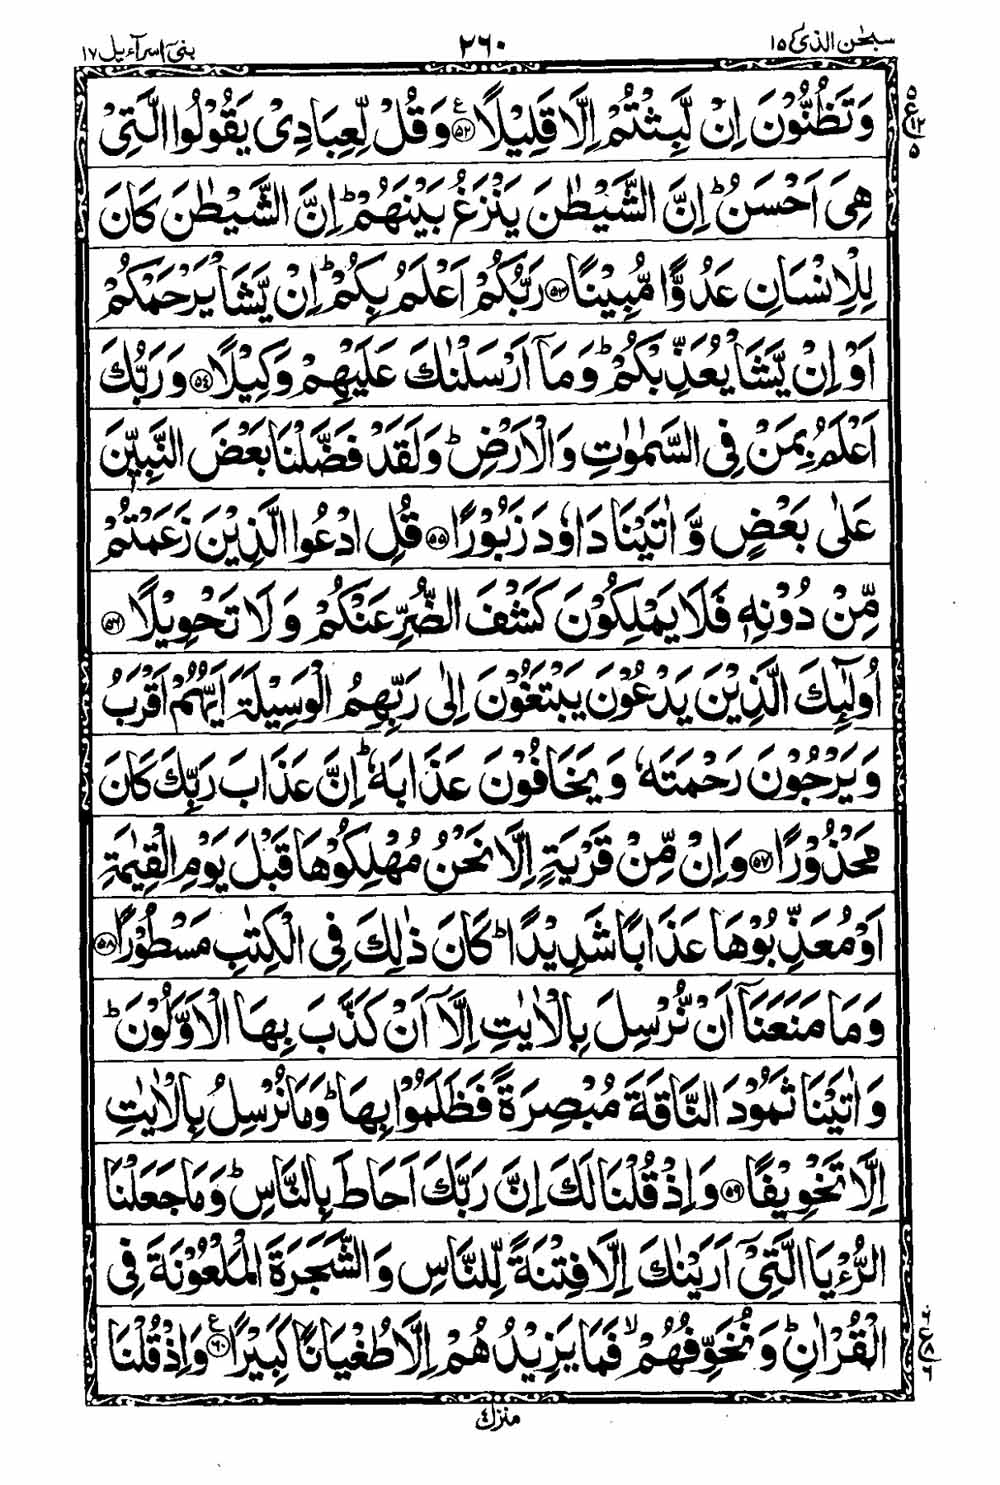 سبحٰن الذی ۱۵
۲۶۰
بنی اسرآءیل ۱۷
وَتَظُنُّوْنَ اِنْ لَّبِثْتُمْ اِلَّا قَلِیْلًا ﴿۵۲﴾ ع وَقُلْ لِّعِبَادِیْ یَقُوْلُوا الَّتِیْ
۵
ع
۱۲
۵
هِیَ اَحْسَنُ ؕ اِنَّ الشَّیْطٰنَ یَنْزَغُ بَیْنَهُمْ ؕ اِنَّ الشَّیْطٰنَ كَانَ
لِلْاِنْسَانِ عَدُوًّا مُّبِیْنًا ﴿۵۳﴾ رَبُّكُمْ اَعْلَمُ بِكُمْ ؕ اِنْ یَّشَاْ یَرْحَمْكُمْ
اَوْ اِنْ یَّشَاْ یُعَذِّبْكُمْ ؕ وَمَاۤ اَرْسَلْنٰكَ عَلَیْهِمْ وَكِیْلًا ﴿۵۴﴾ وَرَبُّكَ
اَعْلَمُ بِمَنْ فِی السَّمٰوٰتِ وَالْاَرْضِ ؕ وَلَقَدْ فَضَّلْنَا بَعْضَ النَّبِیّٖنَ
عَلٰی بَعْضٍ وَّاٰتَیْنَا دَاوٗدَ زَبُوْرًا ﴿۵۵﴾ قُلِ ادْعُوا الَّذِیْنَ زَعَمْتُمْ
مِّنْ دُوْنِهٖ فَلَا یَمْلِكُوْنَ كَشْفَ الضُّرِّ عَنْكُمْ وَلَا تَحْوِیْلًا ﴿۵۶﴾
اُولٰٓئِكَ الَّذِیْنَ یَدْعُوْنَ یَبْتَغُوْنَ اِلٰی رَبِّهِمُ الْوَسِیْلَةَ اَیُّهُمْ اَقْرَبُ
وَیَرْجُوْنَ رَحْمَتَهٗ وَیَخَافُوْنَ عَذَابَهٗ ؕ اِنَّ عَذَابَ رَبِّكَ كَانَ
مَحْذُوْرًا ﴿۵۷﴾ وَاِنْ مِّنْ قَرْیَةٍ اِلَّا نَحْنُ مُهْلِكُوْهَا قَبْلَ یَوْمِ الْقِیٰمَةِ
اَوْ مُعَذِّبُوْهَا عَذَابًا شَدِیْدًا ؕ كَانَ ذٰلِكَ فِی الْكِتٰبِ مَسْطُوْرًا ﴿۵۸﴾
وَمَا مَنَعَنَاۤ اَنْ نُّرْسِلَ بِالْاٰیٰتِ اِلَّاۤ اَنْ كَذَّبَ بِهَا الْاَوَّلُوْنَ ؕ
وَاٰتَیْنَا ثَمُوْدَ النَّاقَةَ مُبْصِرَةً فَظَلَمُوْا بِهَا ؕ وَمَا نُرْسِلُ بِالْاٰیٰتِ
اِلَّا تَخْوِیْفًا ﴿۵۹﴾ وَاِذْ قُلْنَا لَكَ اِنَّ رَبَّكَ اَحَاطَ بِالنَّاسِ ؕ وَمَا جَعَلْنَا
الرُّءْیَا الَّتِیْۤ اَرَیْنٰكَ اِلَّا فِتْنَةً لِّلنَّاسِ وَالشَّجَرَةَ الْمَلْعُوْنَةَ فِی
الْقُرْاٰنِ ؕ وَنُخَوِّفُهُمْ ۙ فَمَا یَزِیْدُهُمْ اِلَّا طُغْیَانًا كَبِیْرًا ﴿۶۰﴾ ع وَاِذْ قُلْنَا
ع
۸
۶
منزل ۴